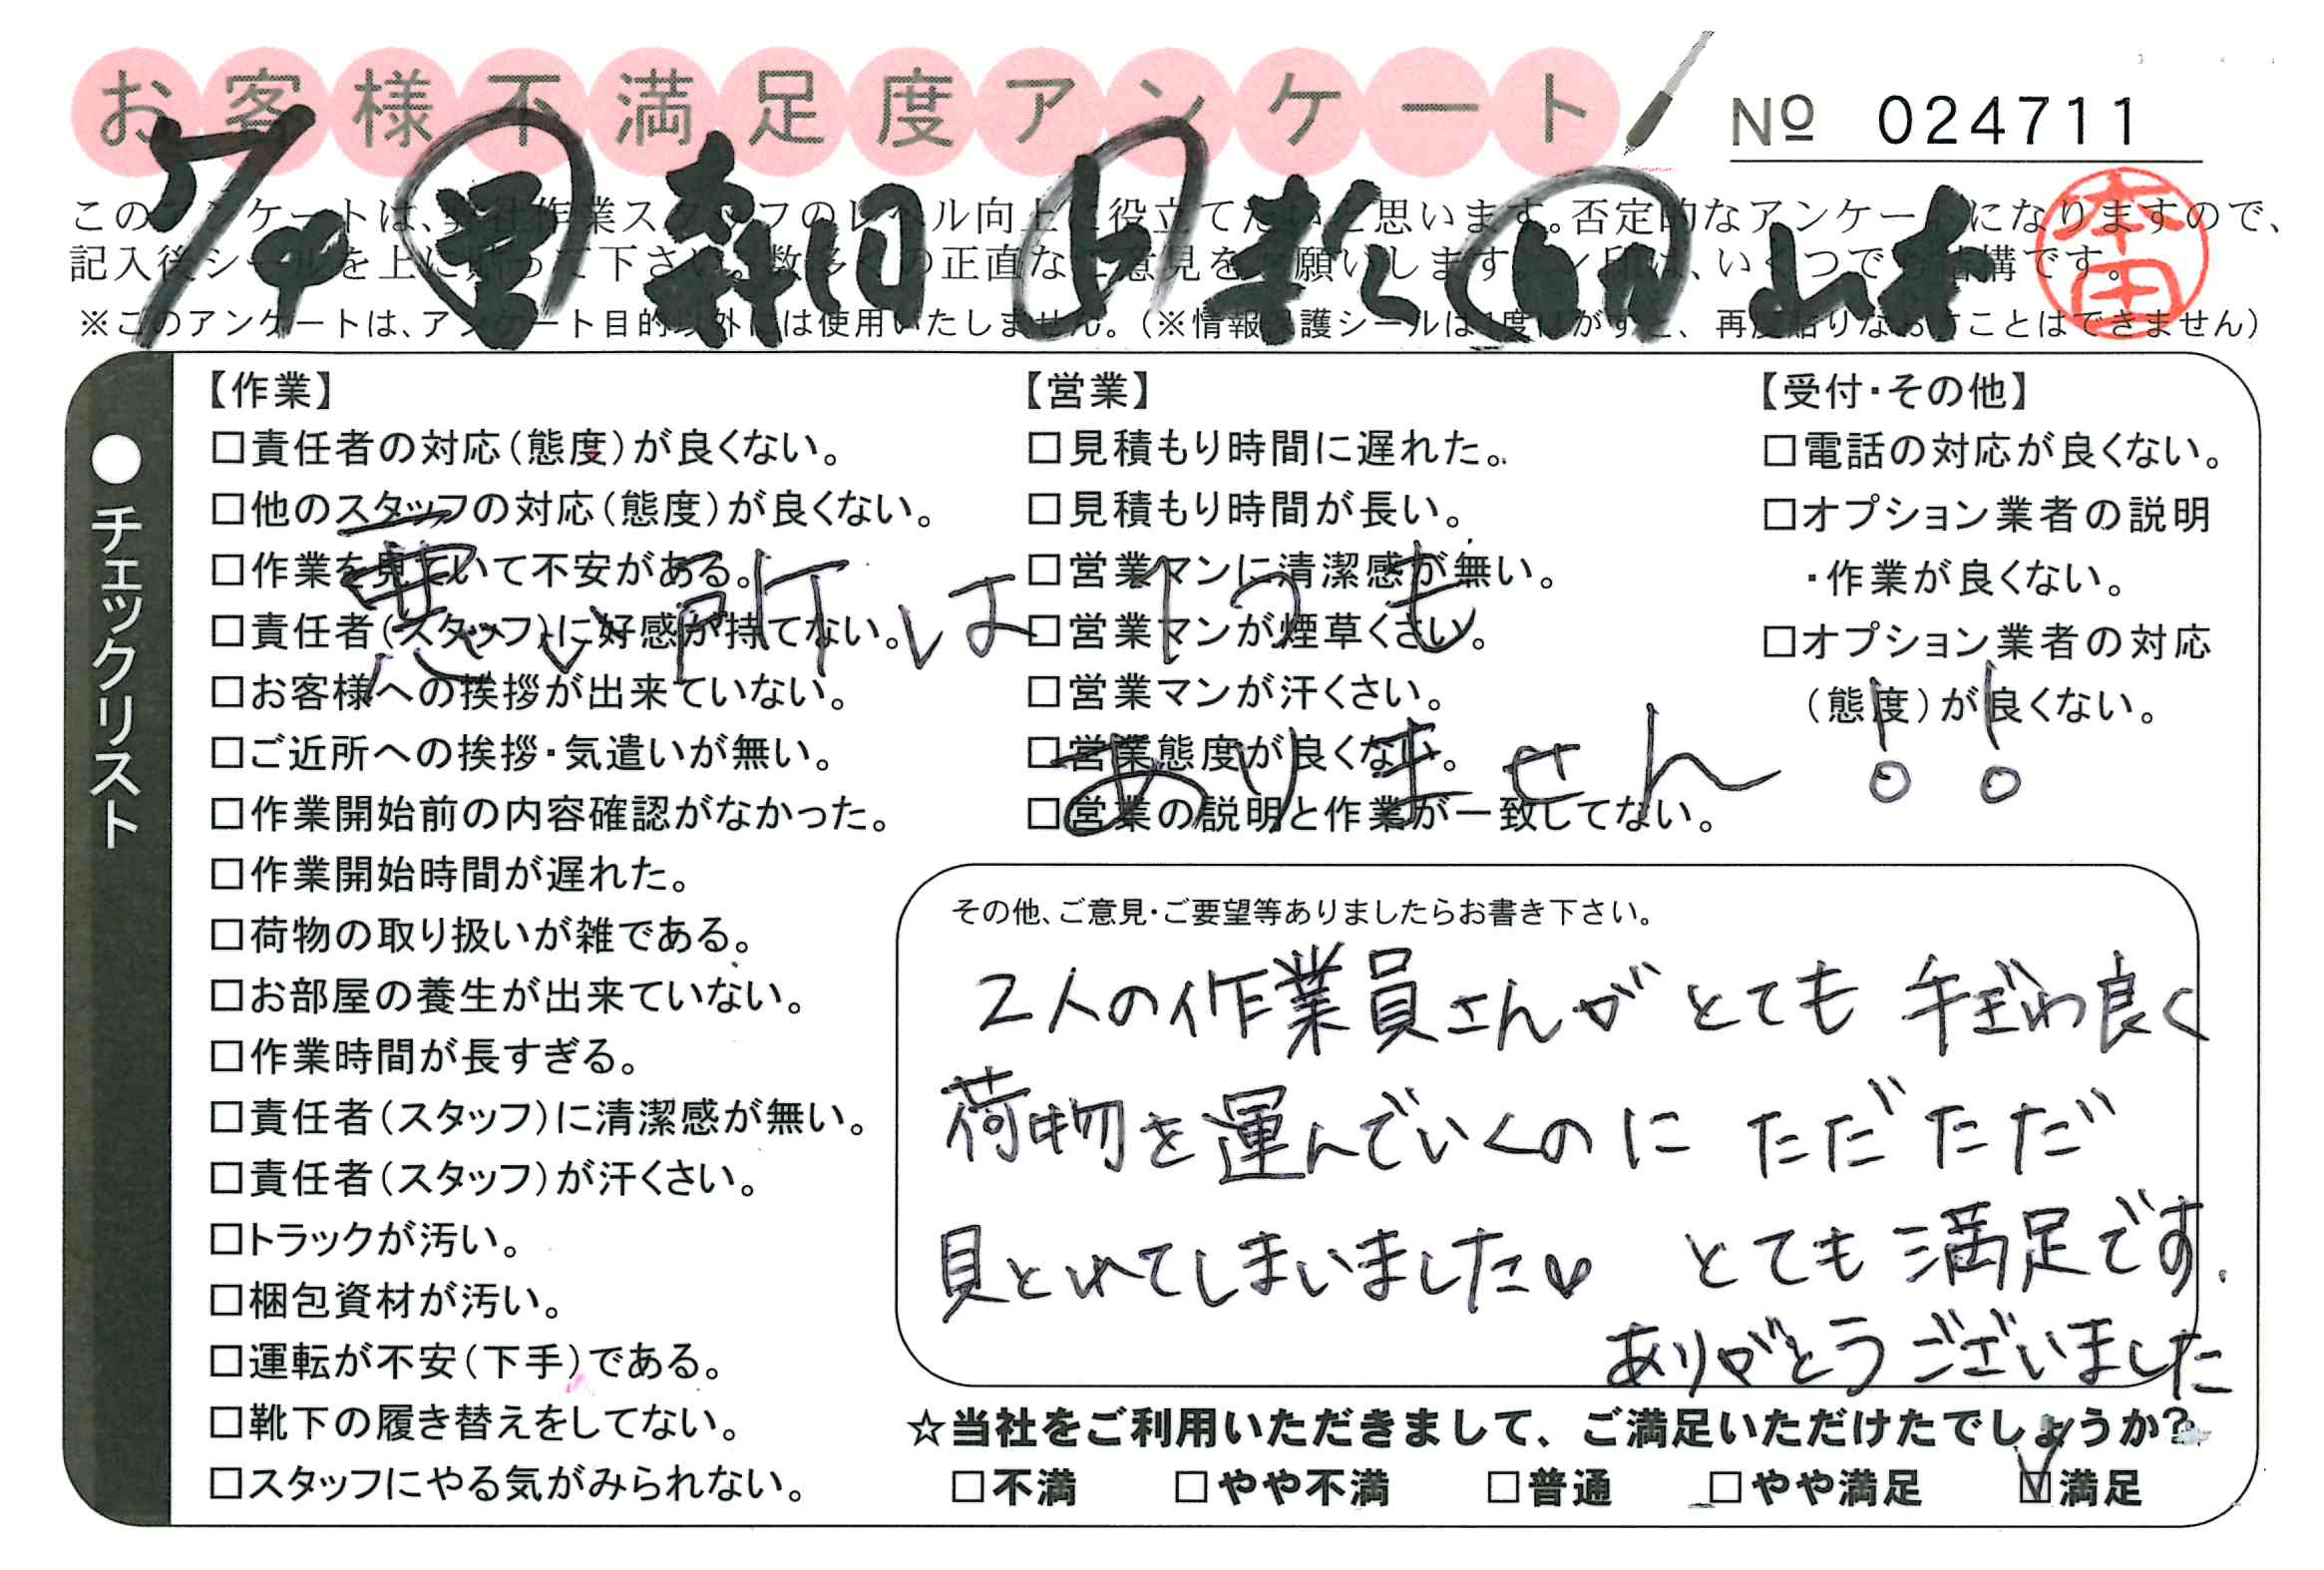 お客様不満足度アンケート
№ 024711
このアンケートは、弊社作業スタッフのレベル向上に役立てたいと思います。否定的なアンケートになりますので、
記入後シールを上に貼って下さい。数多くの正直なご意見をお願いします。✓印は、いくつでも結構です。
※このアンケートは、アンケート目的以外には使用いたしません。（※情報保護シールは1度はがすと、再度貼りなおすことはできません）
7/4 営 森川 山本
本田
●チェックリスト
【作業】
□責任者の対応（態度）が良くない。
□他のスタッフの対応（態度）が良くない。
□作業を見ていて不安がある。
□責任者（スタッフ）に好感が持てない。
□お客様への挨拶が出来ていない。
□ご近所への挨拶・気遣いが無い。
□作業開始前の内容確認がなかった。
□作業開始時間が遅れた。
□荷物の取り扱いが雑である。
□お部屋の養生が出来ていない。
□作業時間が長すぎる。
□責任者（スタッフ）に清潔感が無い。
□責任者（スタッフ）が汗くさい。
□トラックが汚い。
□梱包資材が汚い。
□運転が不安（下手）である。
□靴下の履き替えをしてない。
□スタッフにやる気がみられない。
【営業】
□見積もり時間に遅れた。
□見積もり時間が長い。
□営業マンに清潔感が無い。
□営業マンが煙草くさい。
□営業マンが汗くさい。
□営業態度が良くない。
□営業の説明と作業が一致してない。
【受付・その他】
□電話の対応が良くない。
□オプション業者の説明
・作業が良くない。
□オプション業者の対応
（態度）が良くない。
悪い所は1つも
ありません!!
その他、ご意見・ご要望等ありましたらお書き下さい。
2人の作業員さんがとても手ぎわ良く
荷物を運んでいくのにただただ
見とれてしまいました♡ とても満足です.
ありがとうございました
☆当社をご利用いただきまして、ご満足いただけたでしょうか?
□不満 □やや不満 □普通 □やや満足 ☑満足